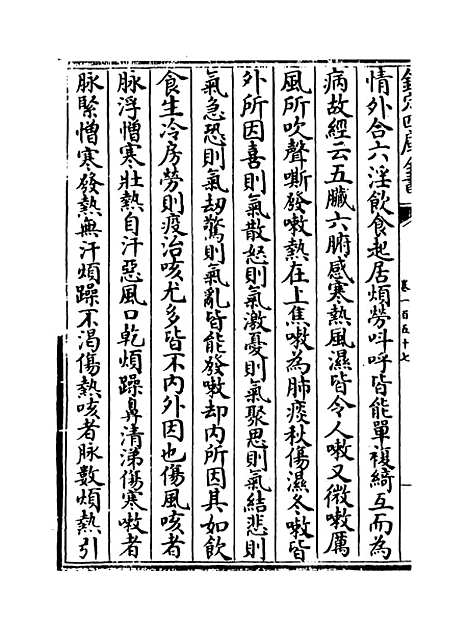 欽定四庫全書
卷一百五十七
情外合六淫飲食起居煩勞呌呼皆能單複綺互而為
病故經云五臟六腑感寒熱風濕皆令人嗽又微嗽厲
風所吹聲嘶發嗽熱在上焦嗽為肺痿秋傷濕冬嗽皆
外所因喜則氣散怒則氣激憂則氣聚思則氣結悲則
氣急恐則氣刧驚則氣亂皆能發嗽却内所因其如飲
食生冷房勞則疫治咳尤多皆不内外因也傷風咳者
脉浮憎寒壯熱自汗惡風口乾煩躁鼻清涕傷寒嗽者
脉緊憎寒發熱無汗煩躁不渴傷熱咳者脉數煩熱引